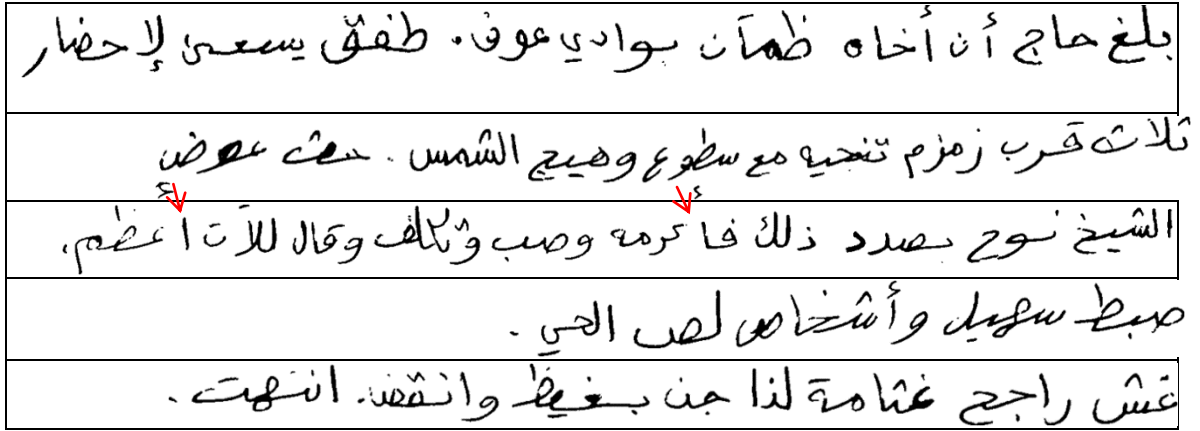 بلغ حاج أن أخاه ظمآن بوادي عوف. طفق يسعى لإحضار
ثلاث قرب زمزم تنجيه مع سطوع وهيج الشمس. حث عوض
الشيخ نوح بصدد ذلك فأكرمه وصب وتكلف وقال للآن أعظم.
صبط سهيل وأشخاص لص الحي.
غش راجح غثامة لذا جن بغيظ وانقض. انتهت.